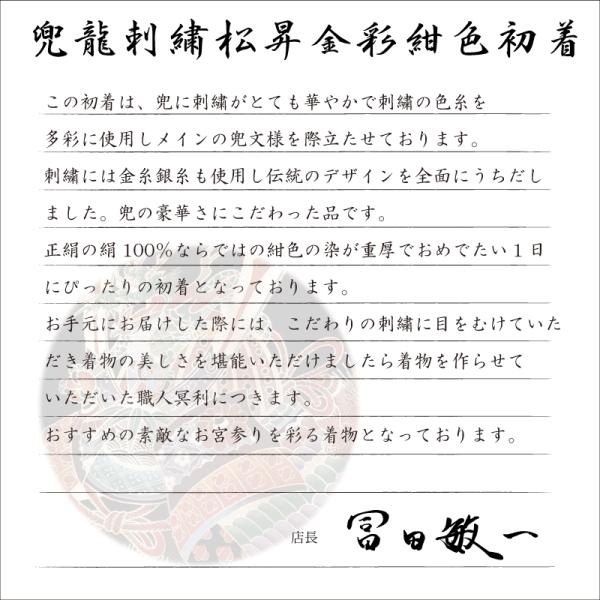 兜龍刺繍松昇金彩紺色初着
この初着は、兜に刺繍がとても華やかで刺繍の色糸を
多彩に使用しメインの兜文様を際立たせております。
刺繍には金糸銀糸も使用し伝統のデザインを全面にうちだし
ました。兜の豪華さにこだわった品です。
正絹の絹100%ならではの紺色の染が重厚でおめでたい1日
にぴったりの初着となっております。
お手元にお届けした際には、こだわりの刺繍に目をむけていた
だき着物の美しさを堪能いただけましたら着物を作らせて
いただいた職人冥利につきます。
おすすめの素敵なお宮参りを彩る着物となっております。
店長 冨田敏一